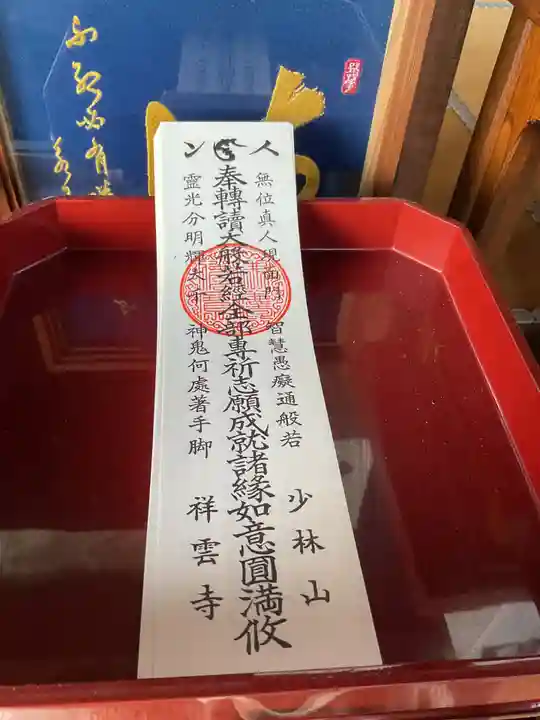 人
無位真人現面門 智慧愚癡通般若
少林山
奉轉讀大般若経全部專祈志願成就諸縁如意圓満攸
ン
靈光分明輝大千 神鬼何處著手脚
祥雲寺